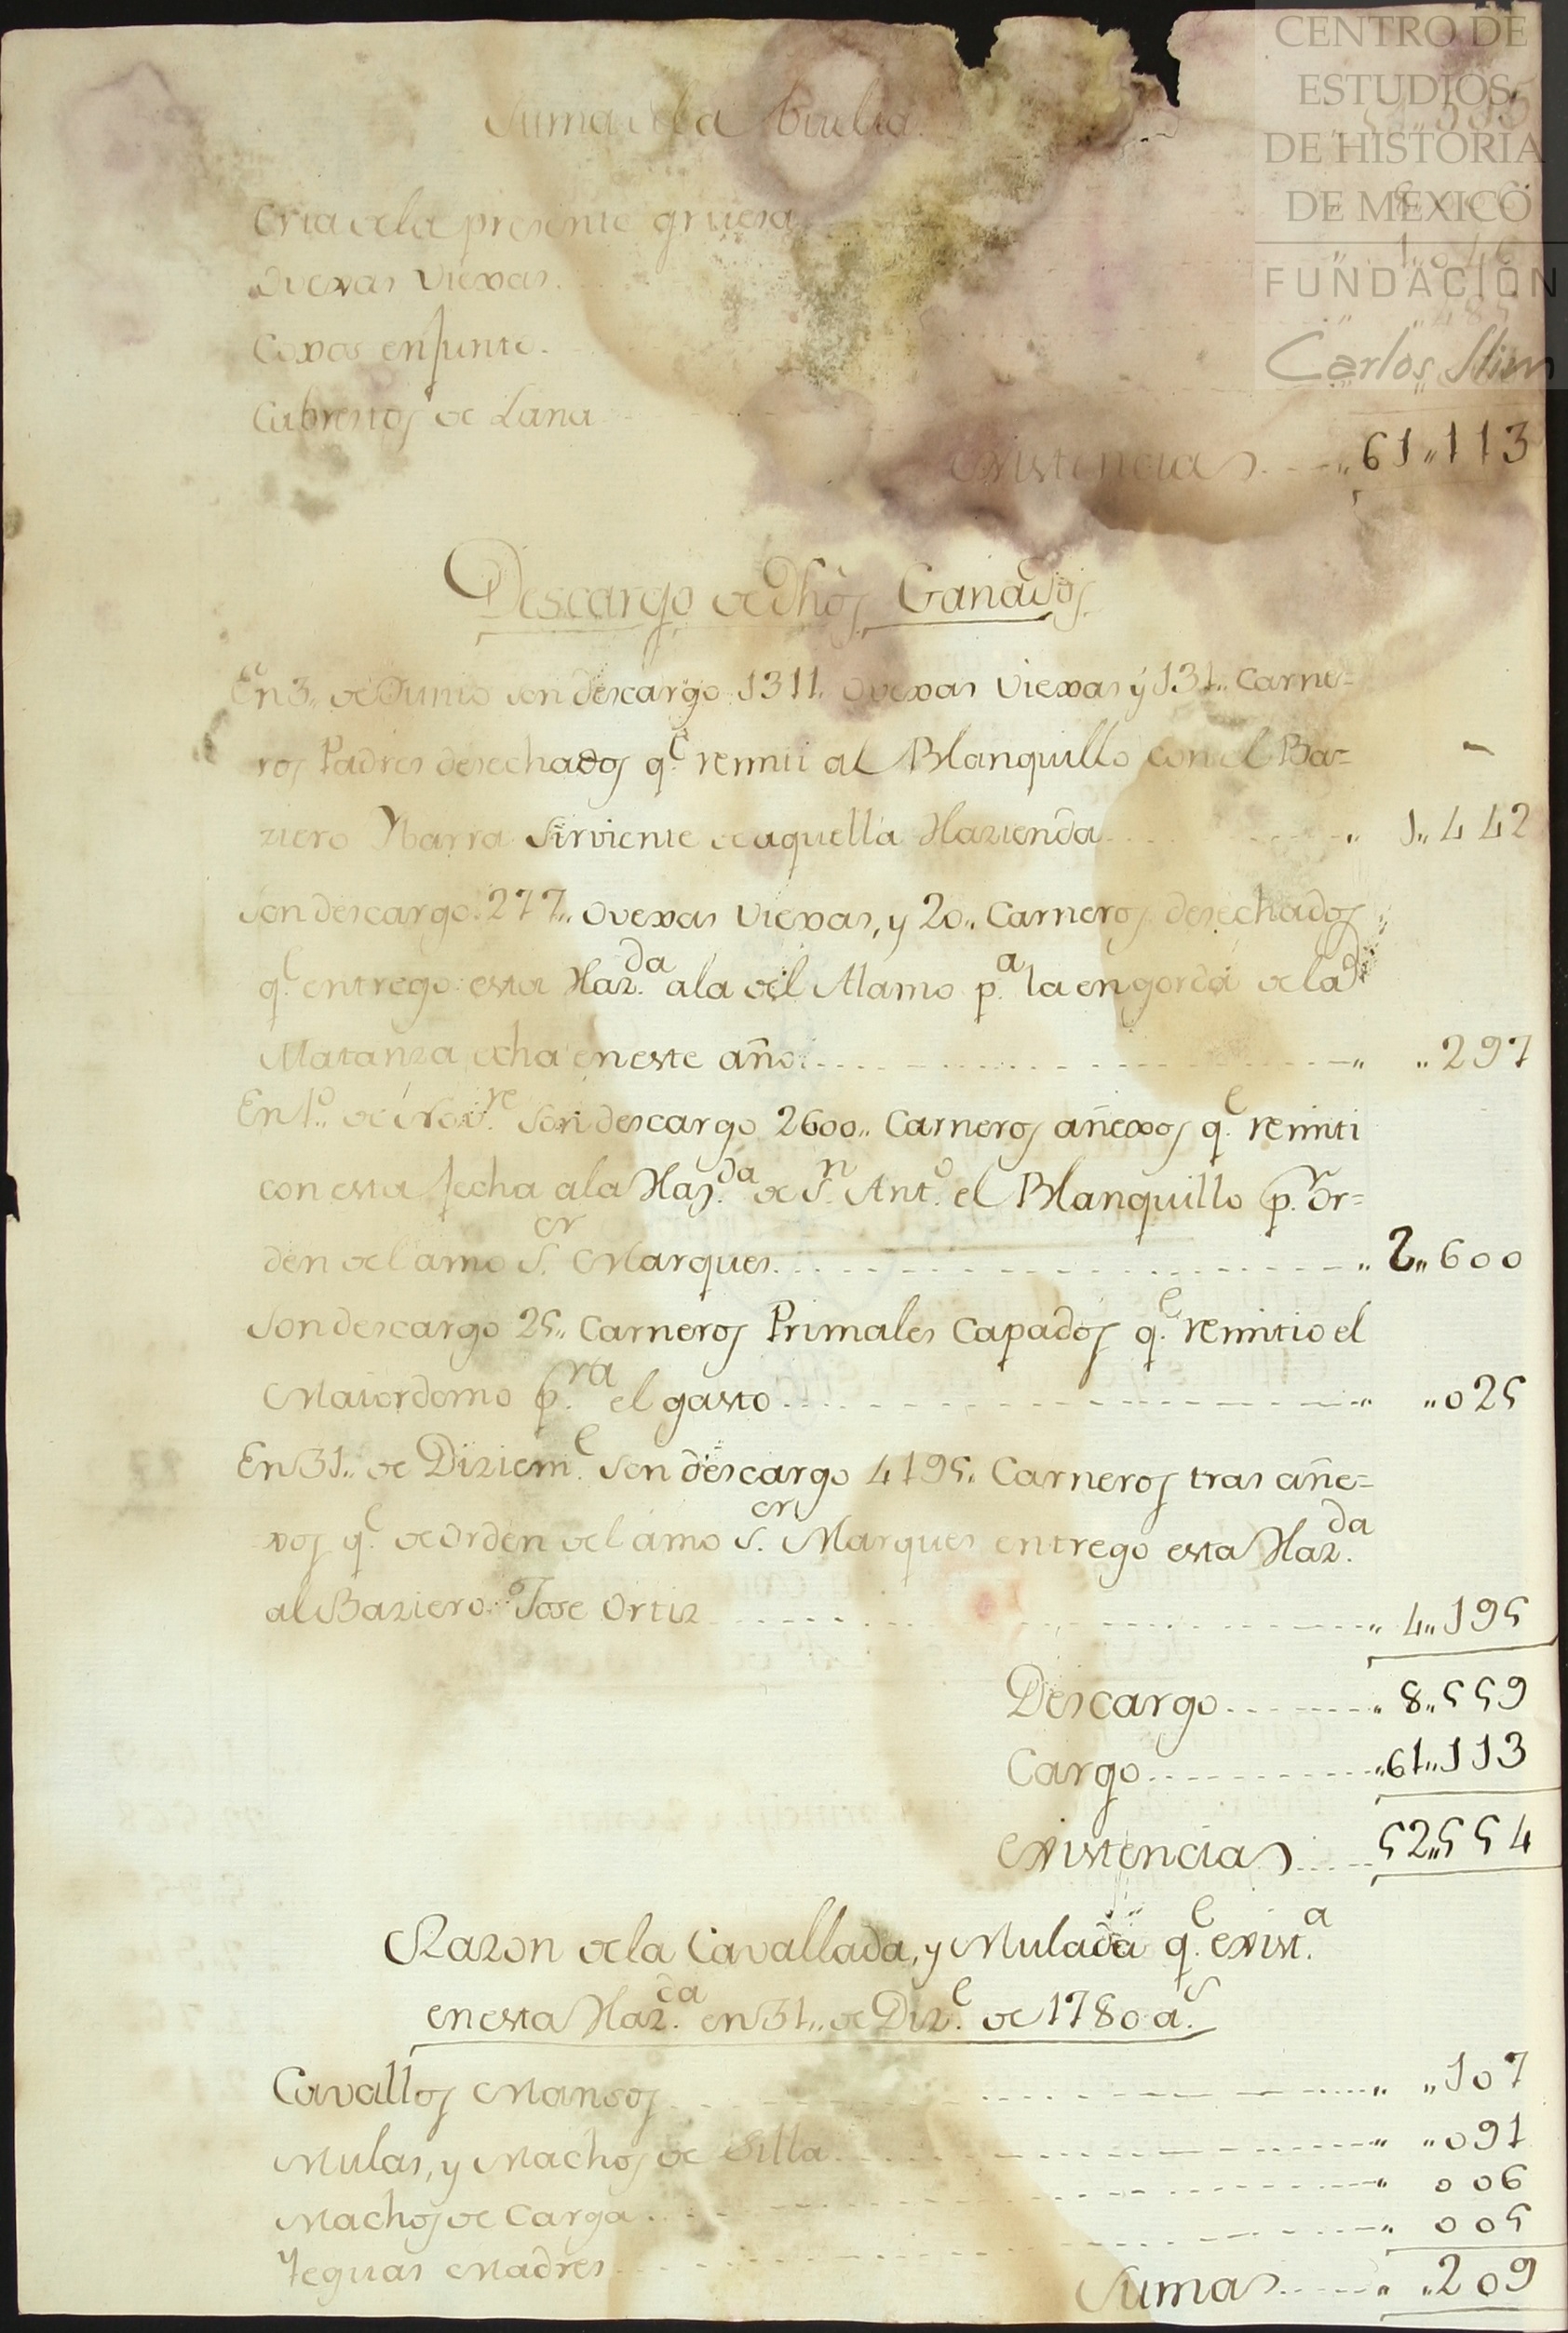 CENTRO DE
ESTUDIOS
DE HISTORIA
DE MEXICO
FUNDACIÓN
Carlos Slim
Suma de la buelta
Cria de la presente gruesa
Ovexas Viexas
Coxas enjunto
Cabresttos de Lana
Existencias „61„113
Descargo de Dhos Ganados
En 3„ de Junio son descargo 1311„ Ovexas Viexas y 131„ Carne=
ros Padres desechados q.e remiti al Blanquillo con el Ba=
ziero Ybarra Sirviente de aquella Hazienda „ 1„442
Son descargo 277„ Ovexas Viexas, y 20„ Carneros desechados
q.e entrego esta Haz.da ala del Alamo p.a la engorda de la
Matanza echa en este año „ „297
En 1.o de Nov.re Son descargo 2600„ Carneros añexos q.e remiti
con esta fecha ala Haz.da de S.n Ant.o el Blanquillo p.r or=
den del amo S.or Marques „ 2„600
Son descargo 25„ Carneros Primales Capados q.e remitio el
Maiordomo p.ra el gasto „ „025
En 31„ de Diziem.e Son descargo 4195„ Carneros tras añe=
xos q.e de orden del amo S.or Marques entrego esta Haz.da
al Baziero Jose Ortiz „ 4„195
Descargo „ 8„559
Cargo „61„113
Existencias 52„554
Razon de la Cavallada, y Mulada q.e exist.a
en esta Haz.da en 31„ de Diz.e de 1780 a.s
Cavallos Mansos „ „107
Mulas, y Machos de Silla „ „091
Machos de Carga „ 006
Yeguas Madres „ 005
Sumas „ „209